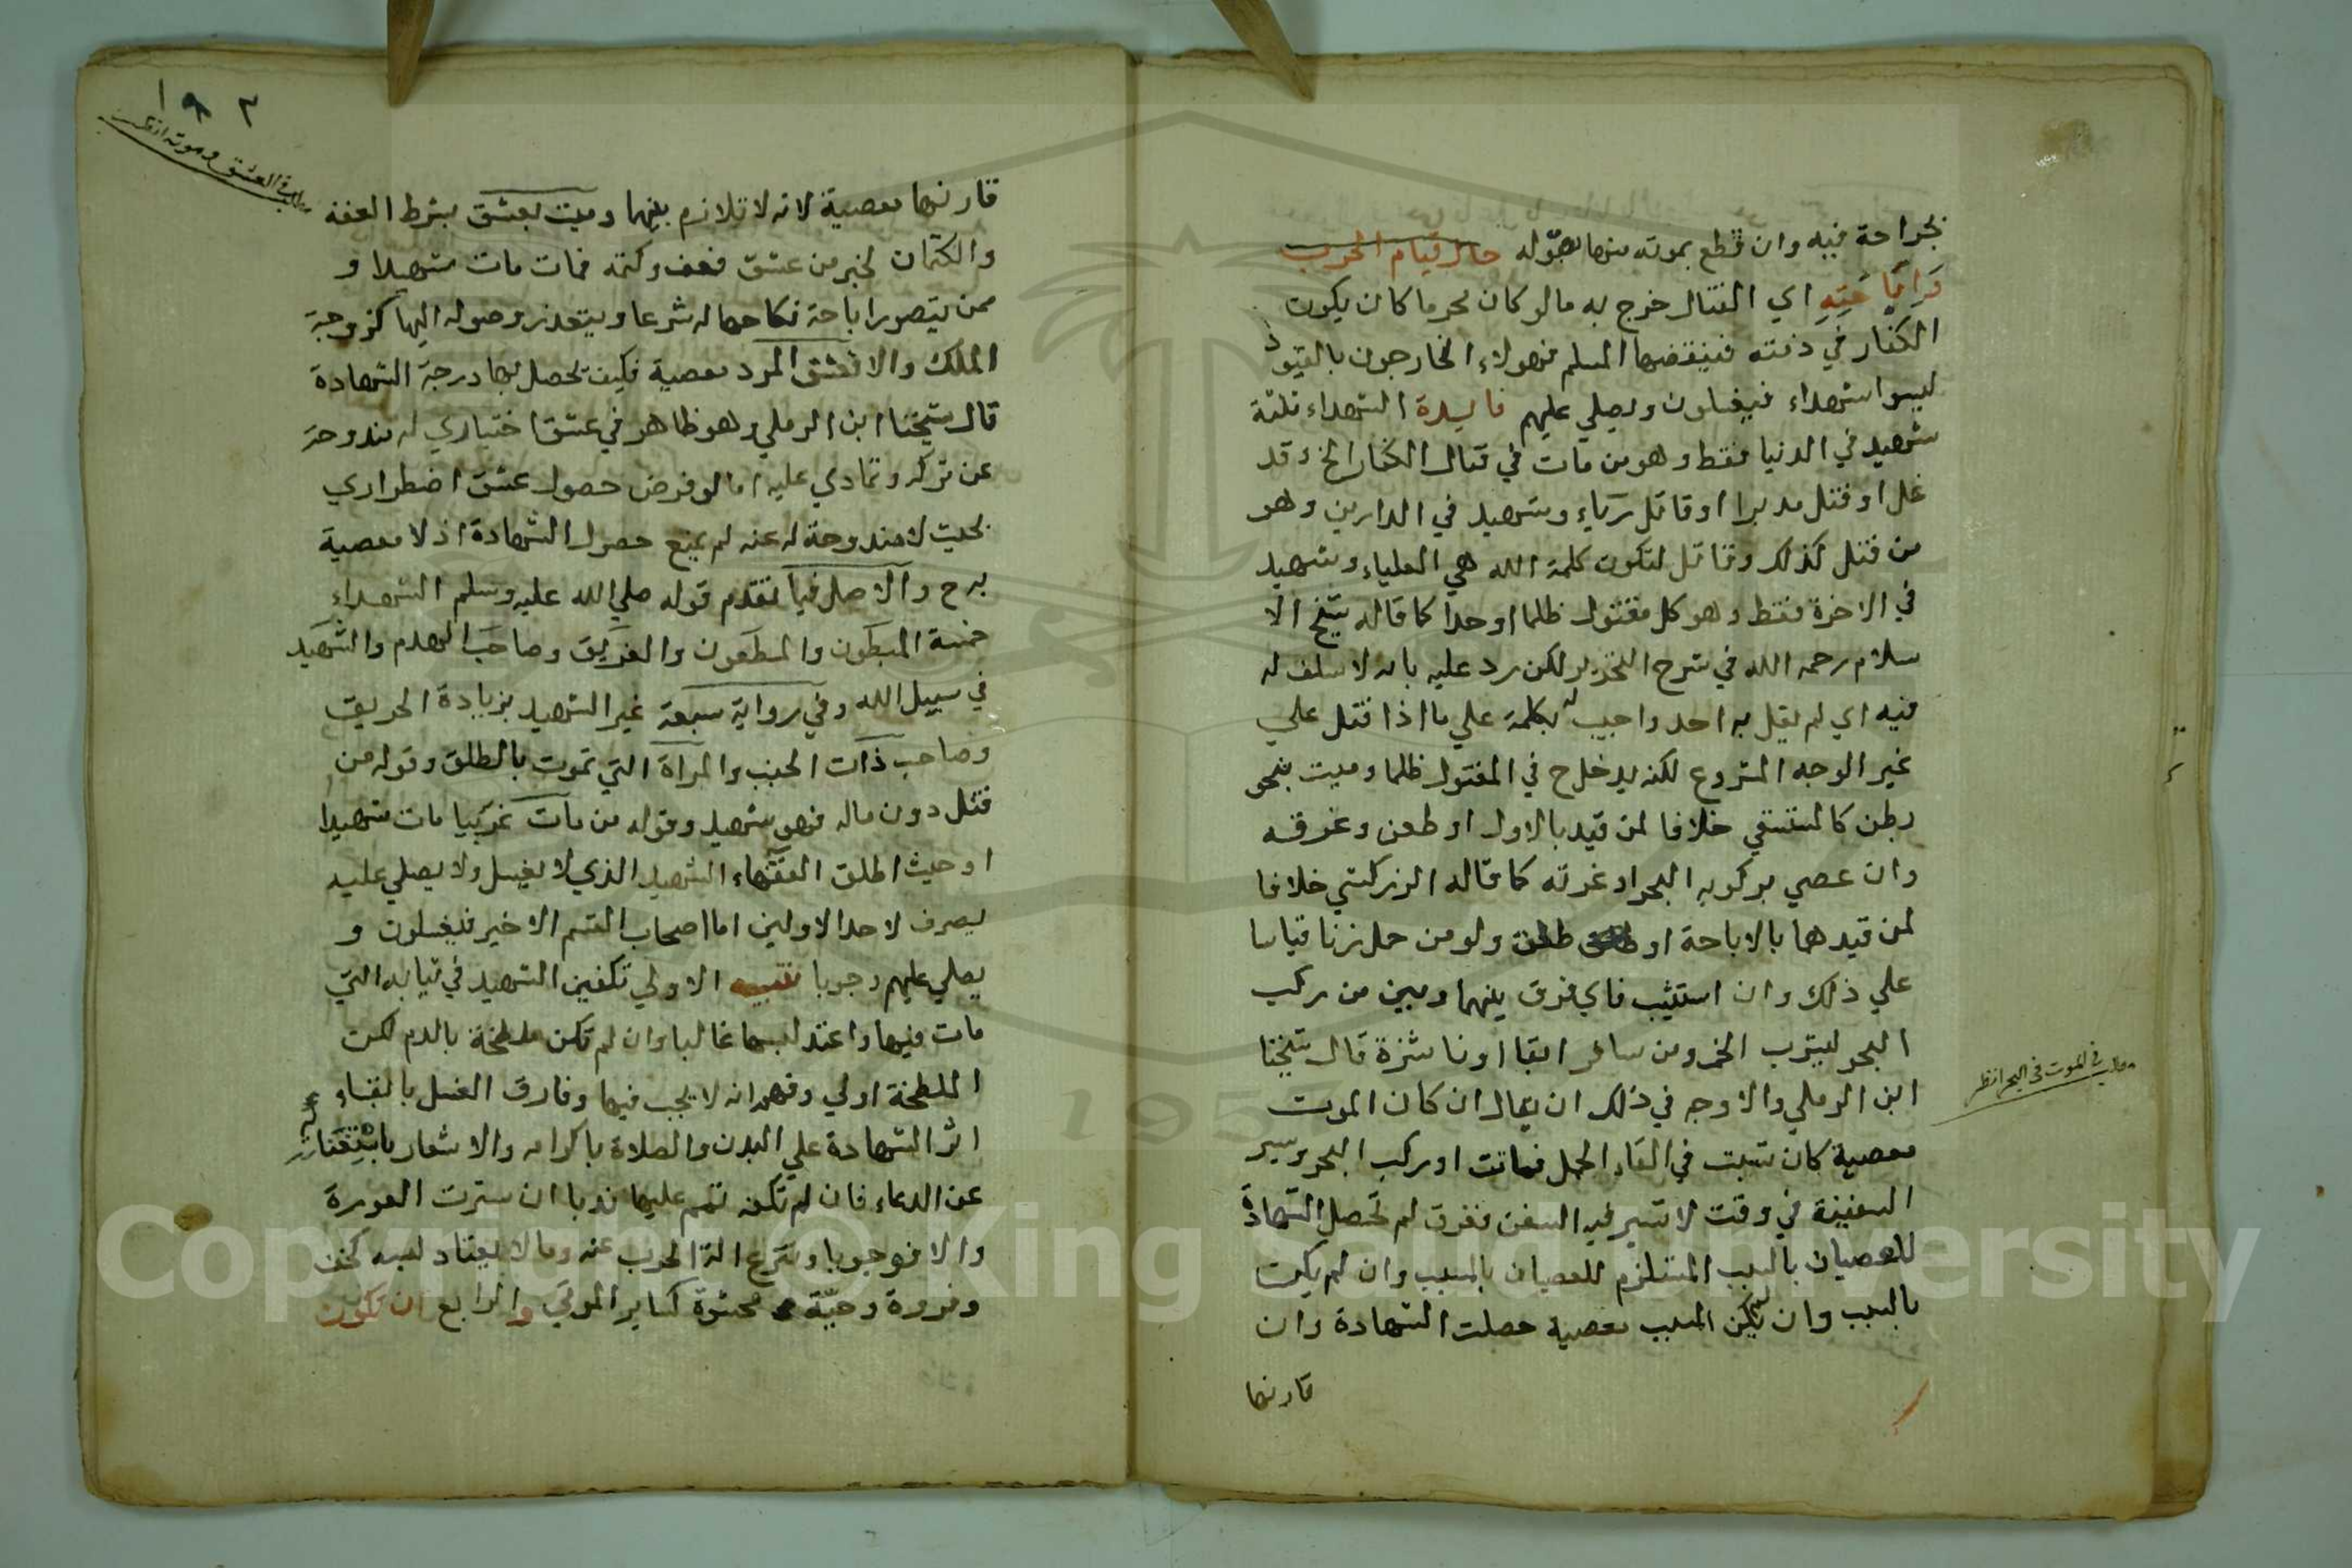 بجراحة فيه وان قطع بموته منها لهوله حال قيام الحرب
واباحته اي القتال خرج به ما لو كان محرما كان يكون
الكفار في ذمته فينقضها المسلم فهولاء الخارجون بالقيود
ليسوا شهداء فيغسلون ويصلي عليهم فايدة الشهداء ثلثة
شهيد في الدنيا فقط وهو من مات في قتال الكفار الخ وقد
غل او قتل مدبرا او قاتل رياء وشهيد في الدارين وهو
من قتل كذلك وقاتل لتكون كلمة الله هي العلياء وشهيد
في الاخرة فقط وهو كل مقتول ظلما او حدا كما قاله شيخ الا
سلام رحمه الله في شرح التحرير لكن رد عليه بانه لا سلف له
فيه اي لم يقل به احد واجيب بكلمة علي ما اذا قتل علي
غير الوجه المشروع لكنه يدخل ح في المقتول ظلما وميت بنحو
بطن كالمستسقي خلافا لمن قيد بالاول او طعن وغرقه
وان عصي بركوبه البحر او غربته كما قاله الزركشي خلافا
لمن قيدهما بالاباحة او طلق ولو من حمل زنا قياسا
علي ذلك وان استثيب فاي فرق بينهما وبين من ركب
البحر ليشرب الخمر ومن سافر ابقا او ناشزة قال شيخنا
ابن الرملي والاوجه في ذلك ان يقال ان كان الموت
معصية كان تسبت في القاء الحمل فماتت او ركب البحر وسير
السفينة في وقت لا تسير فيه السفن فغرق لم تحصل الشهادة
للعصيان بالسبب المستلزم للعصيان بالمسبب وان لم يكن
بالسبب وان لم يكن المسبب معصية حصلت الشهادة وان
قارنها
مطلب في الموت في البحر انظر
١٩٢
مطلب في العشق وموته انظر
قارنها معصية لانه لا تلازم بينهما وميت بعشق بشرط العفة
والكتمان لخبر من عشق فعف وكتم فمات مات شهيدا و
ممن يتصور اباحة نكاحها له شرعا ويتعذر وصوله اليها كزوجة
الملك والا فعشق المرد معصية فكيف تحصل بها درجة الشهادة
قال شيخنا ابن الرملي وهو ظاهر في عشق اختياري له مندوحة
عن تركه وتمادي عليه اما لو فرض حصول عشق اضطراري
بحيث لا مندوحة له عنه لم يمنع حصول الشهادة اذ لا معصية
به ح والاصل فيما تقدم قوله صلي الله عليه وسلم الشهداء
خمسة المبطون والمطعون والغريق وصاحب الهدم والشهيد
في سبيل الله وفي رواية سبعة غير الشهيد بزيادة الحريق
وصاحب ذات الجنب والمراة التي تموت بالطلق وقوله من
قتل دون ماله فهو شهيد وقوله من مات غريبا مات شهيدا
او حيث اطلق الفقهاء الشهيد الذي لا يغسل ولا يصلي عليه
يصرف لاحد الاولين اما اصحاب القسم الاخير فيغسلون و
يصلي عليهم وجوبا تنبيه الاولي تكفين الشهيد في ثيابه التي
مات فيها واعتد لبسها غالبا وان لم تكن ملطخة بالدم لكن
الملطخة اولي وفهم انه لا يجب فيها وفارق الغسل بابقاء
اثر الشهادة علي البدن والصلاة باكرامه والاشعار باستغنائه
عن الدعاء فان لم تكفه تمم عليها ندبا ان سترت العورة
والا فوجوبا وتنزع الة الحرب عنه وما لا يعتاد لبسه كخف
وفروة وجبة محشوة كساير الموتي والرابع ان تكون